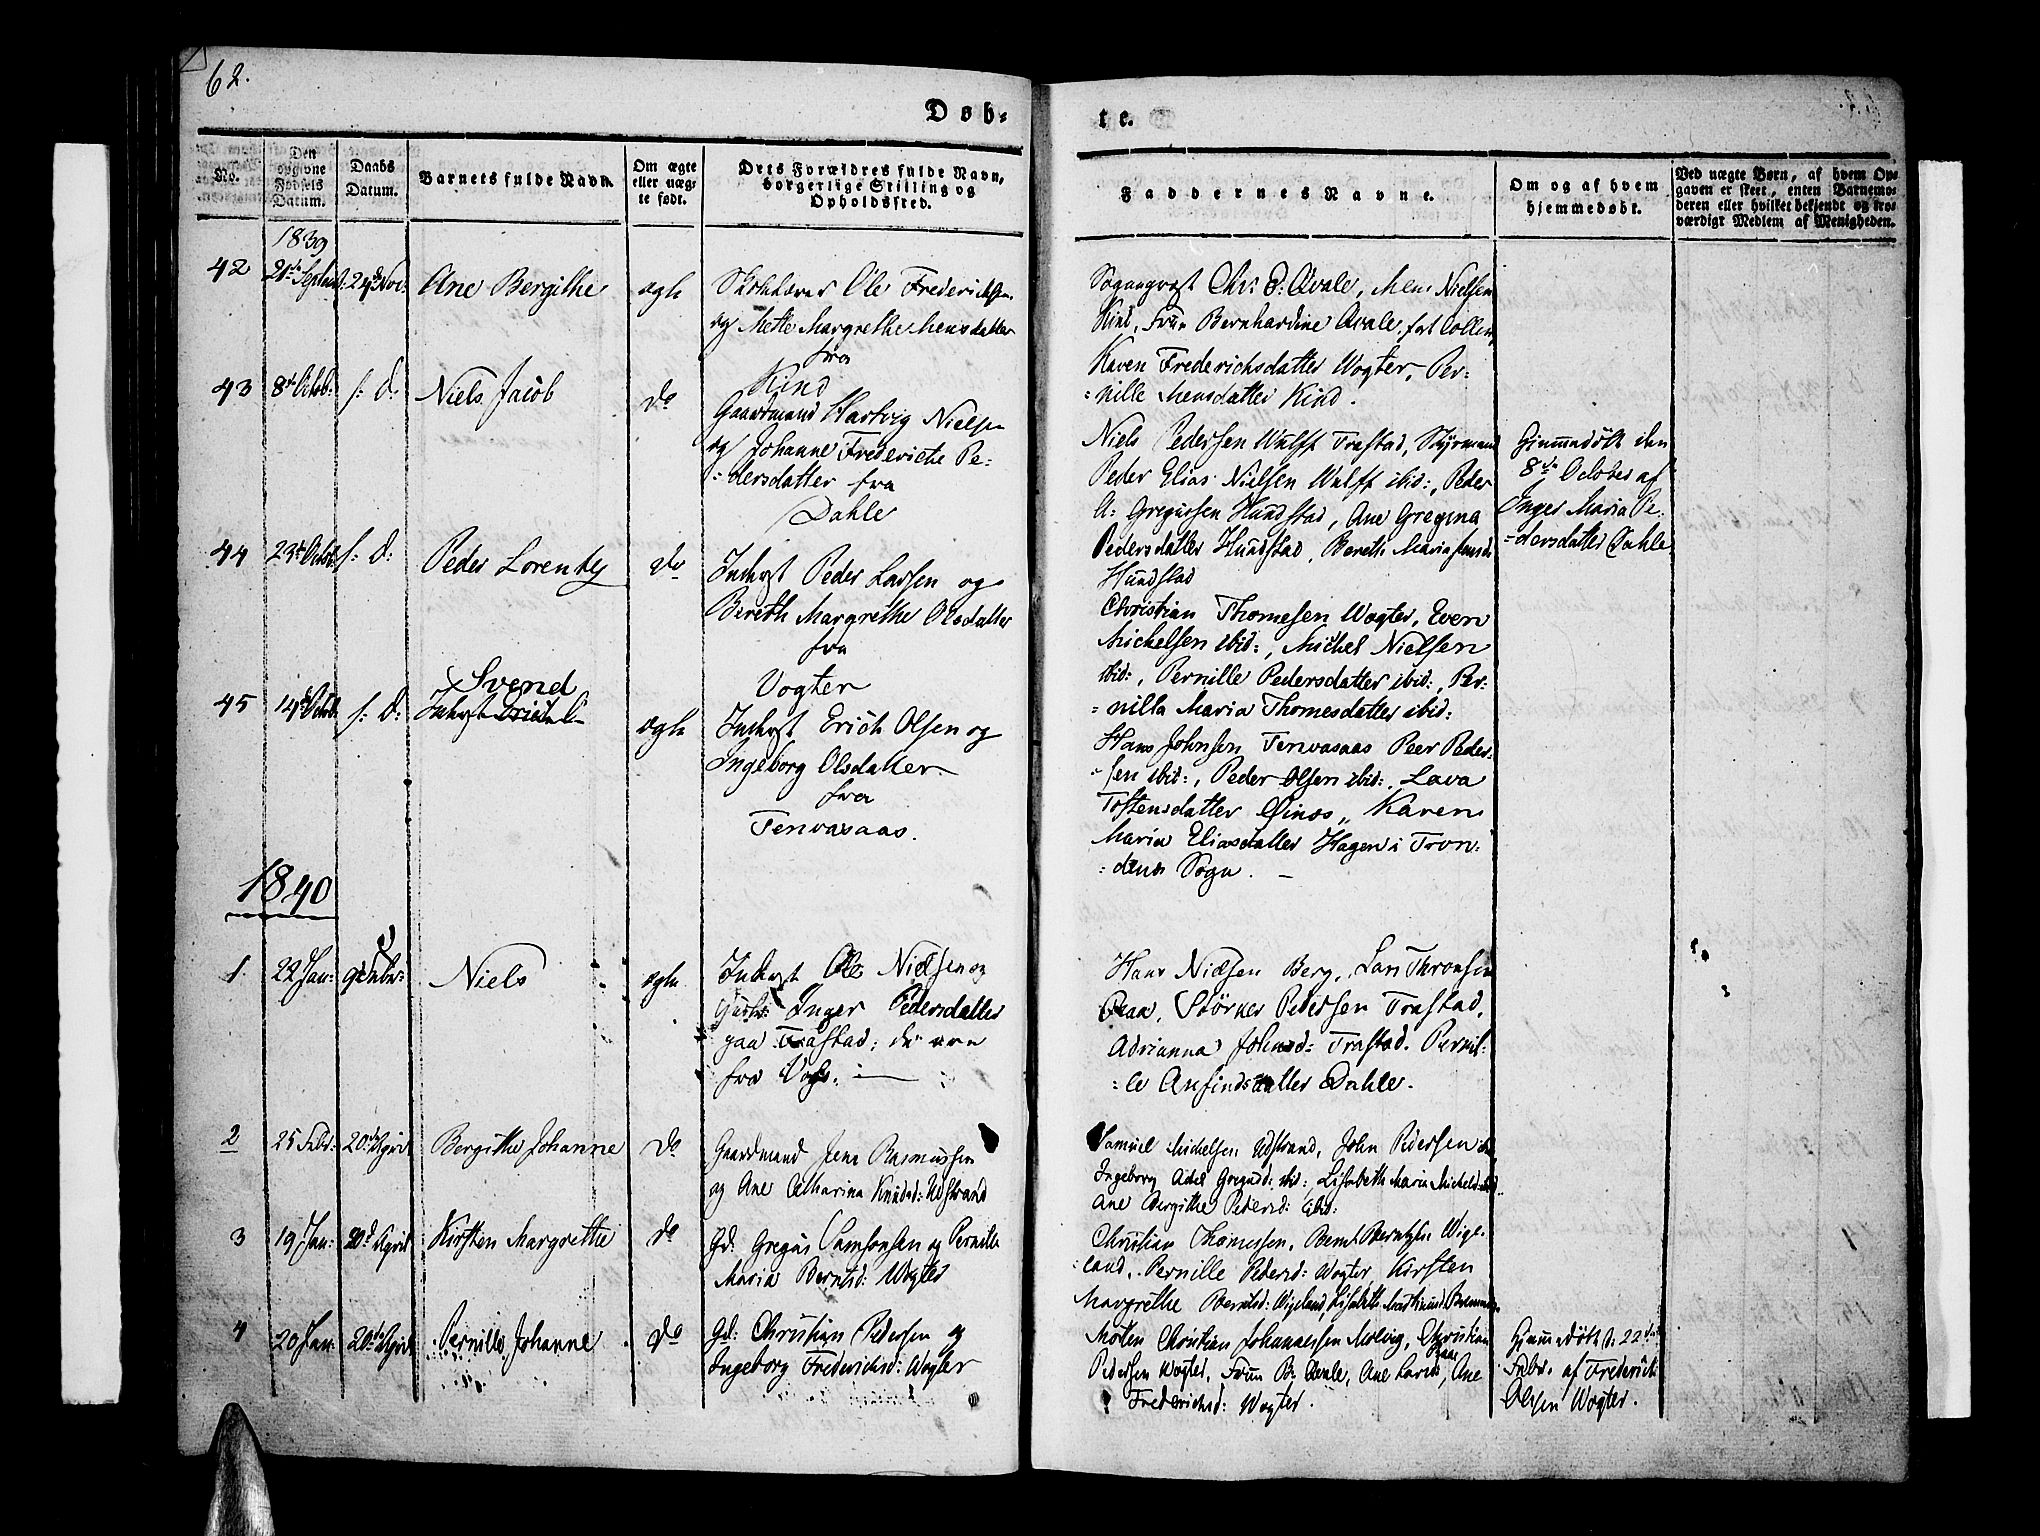 62.
Døb-
te.
No.
Den
opgivne
Fødsels
Datum.
Daabs
Datum.
Barnets fulde Navn.
Om ægte
eller uæg-
te født.
Dets Forældres fulde Navn,
borgerlige Stilling og
Opholdssted.
Faddernes Navne.
Om og af hvem
hjemmedøbt.
Ved uægte Børn, af hvem Op-
gaven er skeet, enten Barnemo-
deren eller hvilket bekjendt og tro-
værdigt Medlem af Menigheden.
1839
42
Ane Bergithe
ægte
Ole Frederichsen
og Mette Margrethe Mensdatter
fra
Kind
Chr: Qvale, Mens Nielsen
Kind, Bernhardine Qvale,
Karen Frederichsdatter Wogter, Per-
nille Mensdatter Kind.
43
8de Octob:
s: d:
Niels Jacob
do
Gaardmand Hartvig Nielsen
og Johanne Frederiche Pe-
dersdatter fra
Dahle
Niels Pedersen Wulff Trastad, Styrmand
Peder Elias Nielsen Wulff ibid:, Peder
A: Gregusen Hundstad, Ane Gregina
Pedersdatter Hundstad, Bereth Maria
Hundstad
Hjemmedøbt den
8de October af
Inger Maria Pe-
dersdatter Dahle
44
23de Octob:
s: d:
Peder Lorentz
do
Indhyst Peder Larsen og
Bereth Margrethe Olsdatter
fra
Vogter
Christian Thomesen Wogter, Even
Michelsen ibid:, Michel Nielsen
ibid:, Pernille Pedersdatter ibid:, Per-
nilla Maria Thomesdatter ibid:
45
14de Octob:
s: d:
Svend
ægte
Indhyst Erich Olsen og
Ingeborg Olsdatter
fra
Tenvasaas.
Hans Johnsen Tenvasaas Peer Peder-
sen ibid:, Peder Olsen ibid:, Lava
Tostensdatter, Karen
Maria Eliasdatter Hagen i Tron-
denes Sogn.
1840
1
22 Jan:
9de Febr:
Niels
ægte
Indhyst Ole Nielsen og
Inger Pedersdatter
paa Trastad; de ere
fra Vos.
Hans Nielsen Berg, Lars Thronsen
Størker Pedersen Trastad,
Adrianna Johnsd: Trastad. Pernil-
le Anfindsdatter Dahle.
2
25 Febr:
20de April
Bergithe Johanne
do
Gaardmand Jens Rasmussen
og Ane Catharina Knudsd: Udstrand
Samuel Michelsen Udstrand, John Pedersen
Ingeborg Gregusd: ibid:, Elisabeth Maria
Ane Bergithe Pedersd: ibid:
3
19 Jan:
20de April
Kirsten Margrethe
do
Gd: Gregus Samsonsen og Pernille
Maria Berntsd: Wogter
Christian Thomessen, Bernt Berntsen Wige-
land, Pernille Pedersd: Wogter Kirsten
Margrethe Berntsd: Wigeland,
4
20 Jan:
20de April
Pernille Johanne
do
Gd: Christian Pedersen og
Ingeborg Frederichsd: Wogter
Christian Johannessen Molvig, Christian
Pedersen Wogter, Qvale, Ane
Frederichsd: Wogter.
Hjemmedøbt d: 22de
Febr. af Frederich
Olsen Wogter.